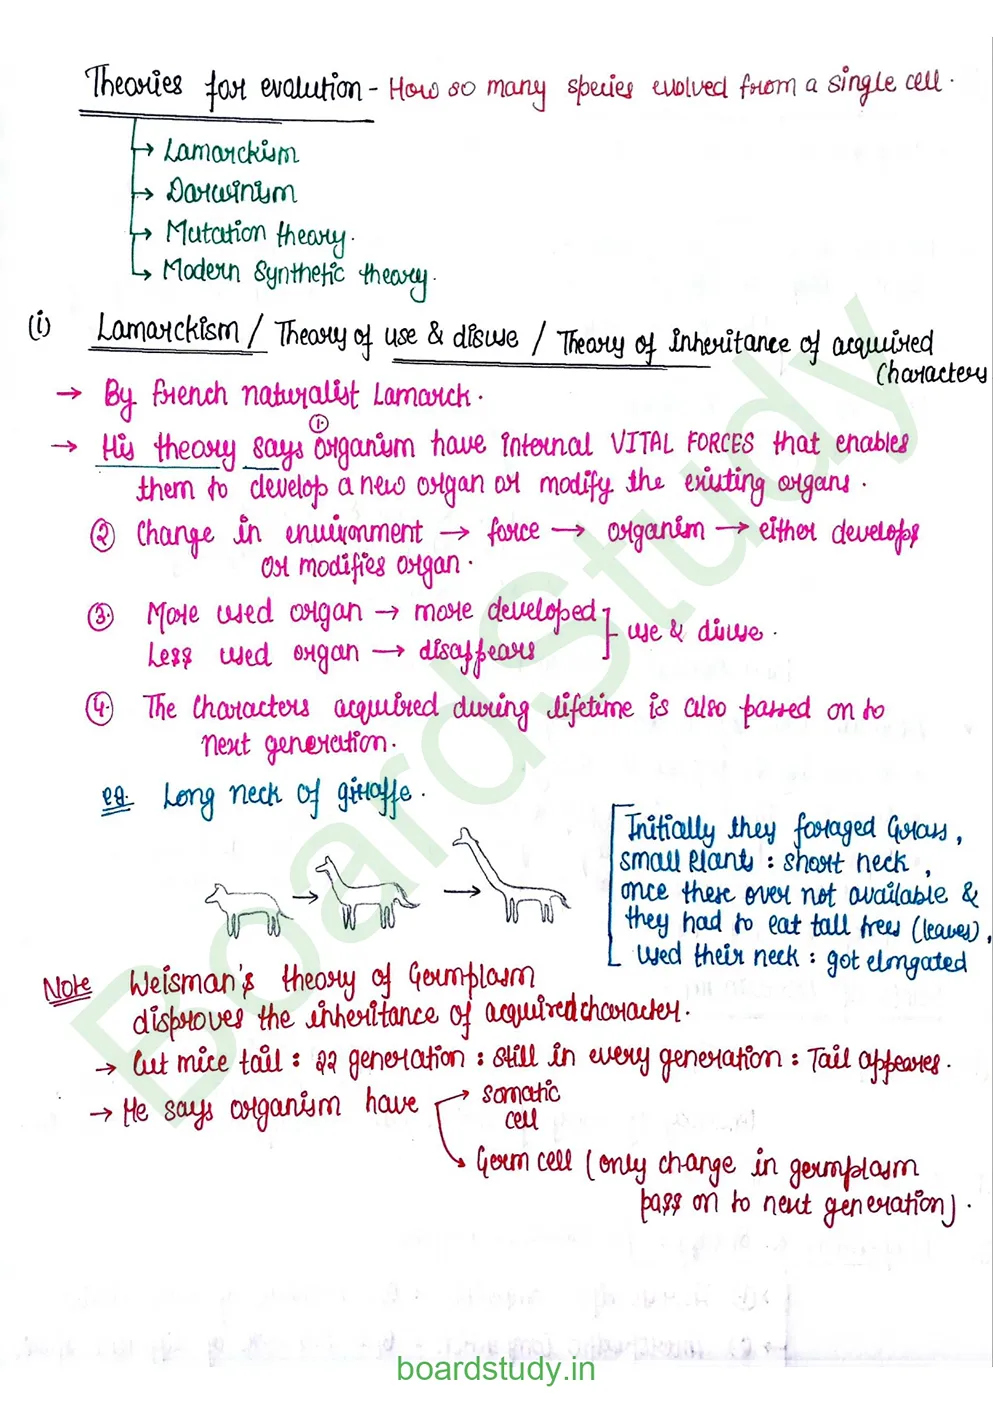 Theories for evolution - How so many species evolved from a single cell.
→ Lamarckism
→ Darwinism
→ Mutation theory.
→ Modern Synthetic theory.
(i) Lamarckism / Theory of use & disuse / Theory of inheritance of acquired
Characters
→ By french naturalist Lamarck.
→ His theory says ① organism have internal VITAL FORCES that enables
them to develop a new organ or modify the existing organs.
② Change in environment → force → organism → either develops
or modifies organ.
③ More used organ → more developed
Less used organ → disappears
use & disuse.
④ The characters acquired during lifetime is also passed on to
next generation.
eg. Long neck of giraffe.
Initially they foraged Grass,
small plants : short neck,
once these over not available &
they had to eat tall trees (leaves),
used their neck : got elongated
Note Weisman's theory of Germplasm
disproves the inheritance of acquired character.
→ Cut mice tail : 22 generation : still in every generation : Tail appeares.
→ He says organism have → somatic
cell
→ Germ cell (only change in germplasm
pass on to next generation).
BoardStudy
boardstudy.in